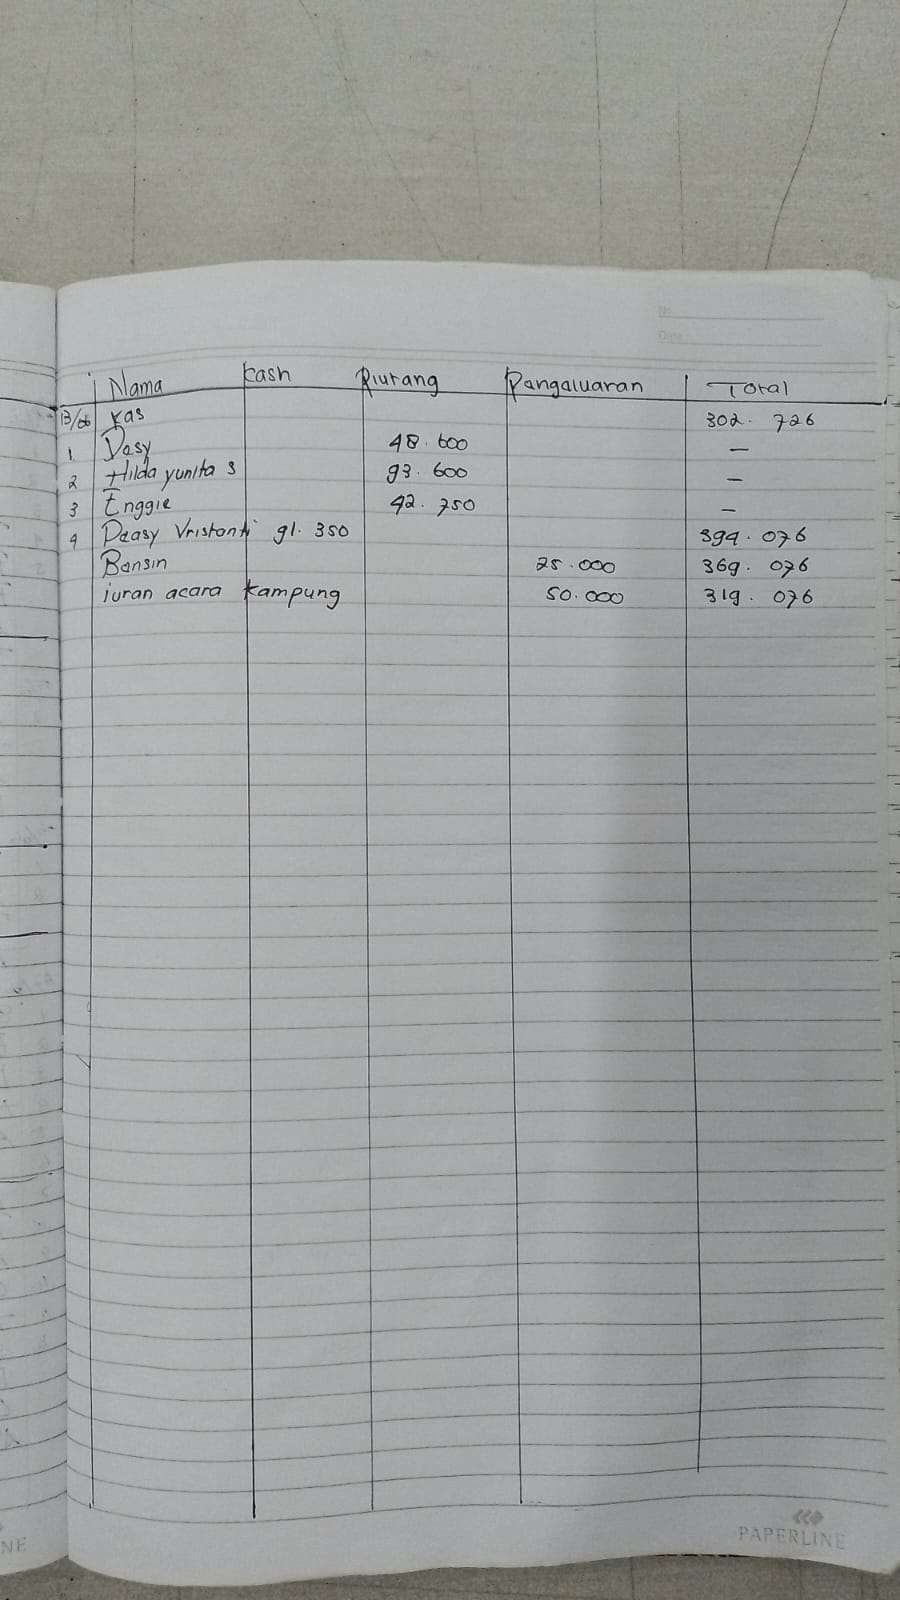 No.
Date
Nama Kash Piutang Pengeluaran Total
13/06 Kas 302.726
1 Desy 48.600 —
2 Hilda yunita s 93.600 —
3 Enggie 42.750 —
4 Deasy Vristanti 91.350 394.076
Bensin 25.000 369.076
iuran acara kampung 50.000 319.076
PAPERLINE
NE